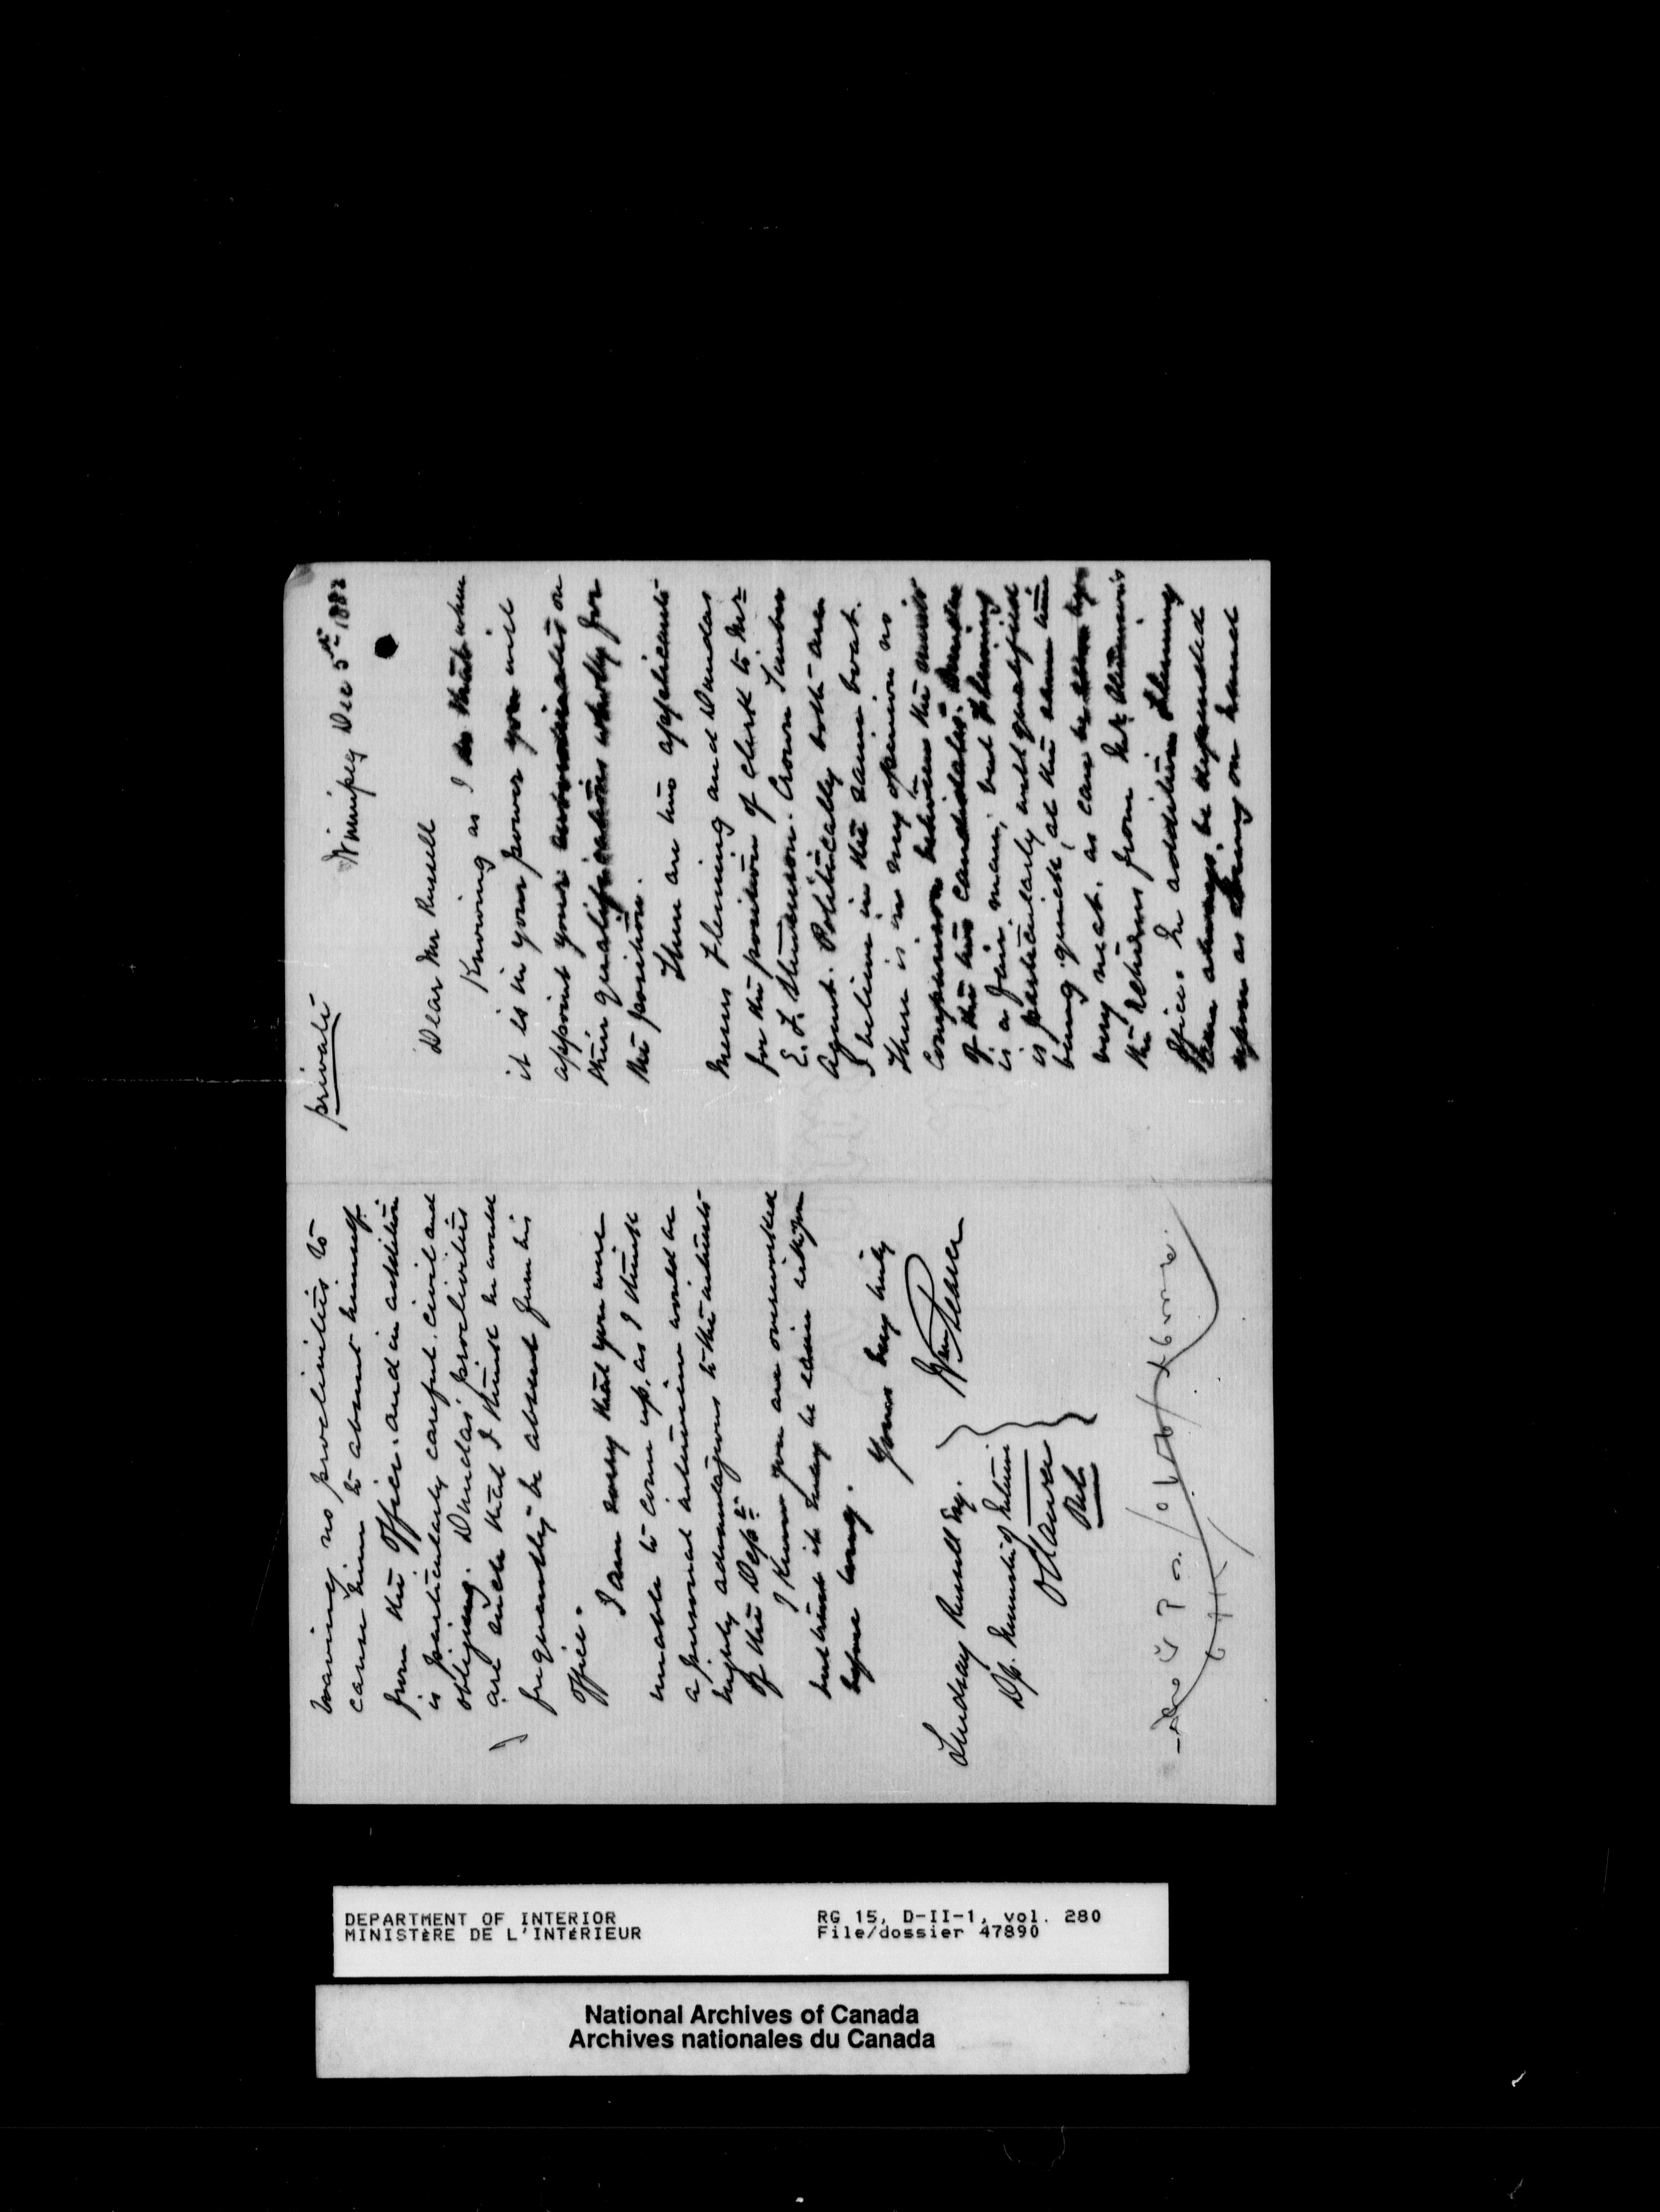 private
Winnipeg Dec 5th 1882
Dear Mr Russell
Knowing as I do that when
it is in your power you will
appoint your subordinates on
their qualifications wholly for
the position.
There are two applicants
Messrs Fleming and Dundas
for the position of clerk to Mr
E. F. Stephenson. Crown Timber
Agent. Politically both are
I believe in the same boat.
There is in my opinion no
comparison between the merits
of the two candidates. Dundas
is a fair man, but Fleming
is particularly well qualified
being quick, at the same time
very neat. as can be seen by
the returns from Mr Stephenson's
Office. In addition Fleming
can always be depended
upon as being on hand
having no proclivities to
cause him to absent himself
from the Office. and in addition
is particularly careful. civil and
obliging. Dundas' proclivities
are such that I think he would
frequently be absent from his
office.
I am sorry that you were
unable to come up, as I think
a personal interview would be
highly advantageous to the interests
of the Dept.
I know you are overworked
but trust it may be easier with you
before long.
Yours very truly
Wm Pearce
Lindsay Russell Esq.
Dp. Minister of Interior
Ottawa
Ont.
DEPARTMENT OF INTERIOR
MINISTÈRE DE L'INTÉRIEUR
RG 15, D-II-1, vol. 280
File/dossier 47890
National Archives of Canada
Archives nationales du Canada